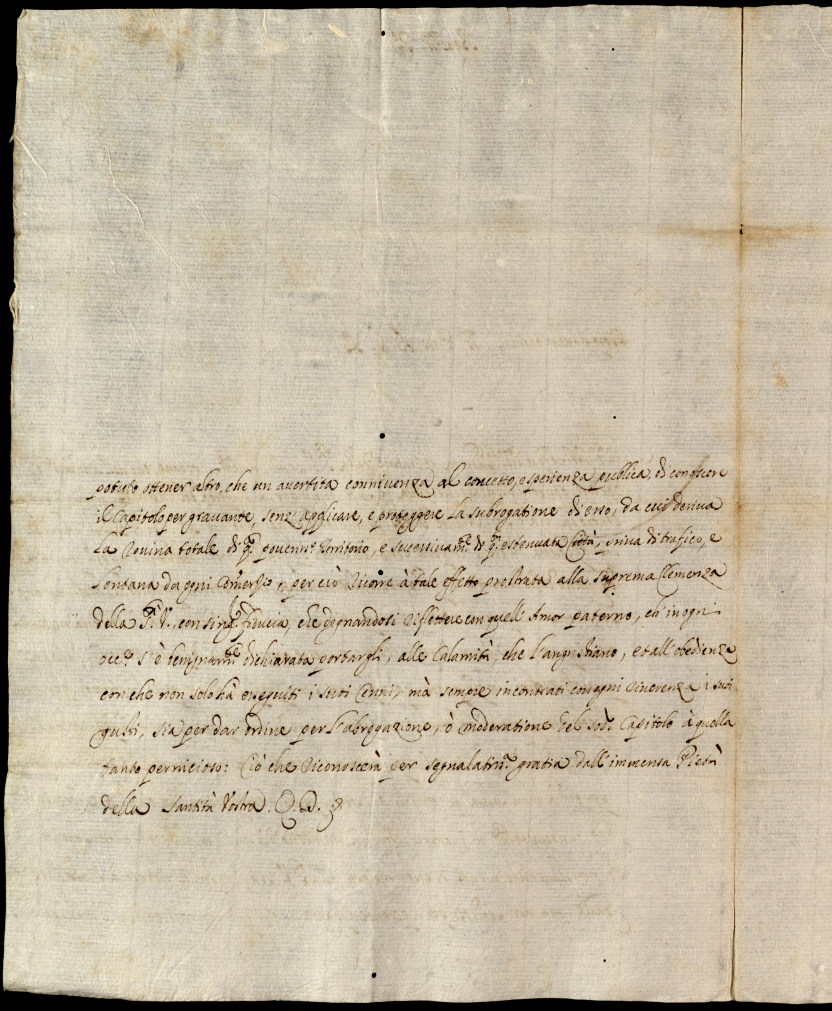 potuto ottener altro, che un avertita connivenza al concetto, esperienza publica, di conoscere
il Capitolo per gravante, senz'applicare, e proteggere la subrogatione di esso, da cui deriva
la rovina totale di q.to Territorio, e successivam.te di q.ta estenuata Città, priva di trafico, e
lontana da ogni Comersio, per ciò ricorre à tale effetto prostrata alla suprema Clemenza
della S.tà V., con sing.r fiducia, che degnandosi riflettere con quell'Amor paterno, ch'in ogni
occ.ne s'è benignam.te dichiarata portargli, alle Calamità, che l'angustiano, et all'obedienza
con che non solo hà eseguiti i suoi Cenni, mà sempre incontrati con ogni riverenza i suoi
gusti, sia per dar ordine per l'abrogazione, ò moderatione del sod.o Capitolo à quella
tanto pernicioso: Ciò che riconoscerà per segnalatiss.a gratia dall'immensa Pietà
della Santità Vostra.